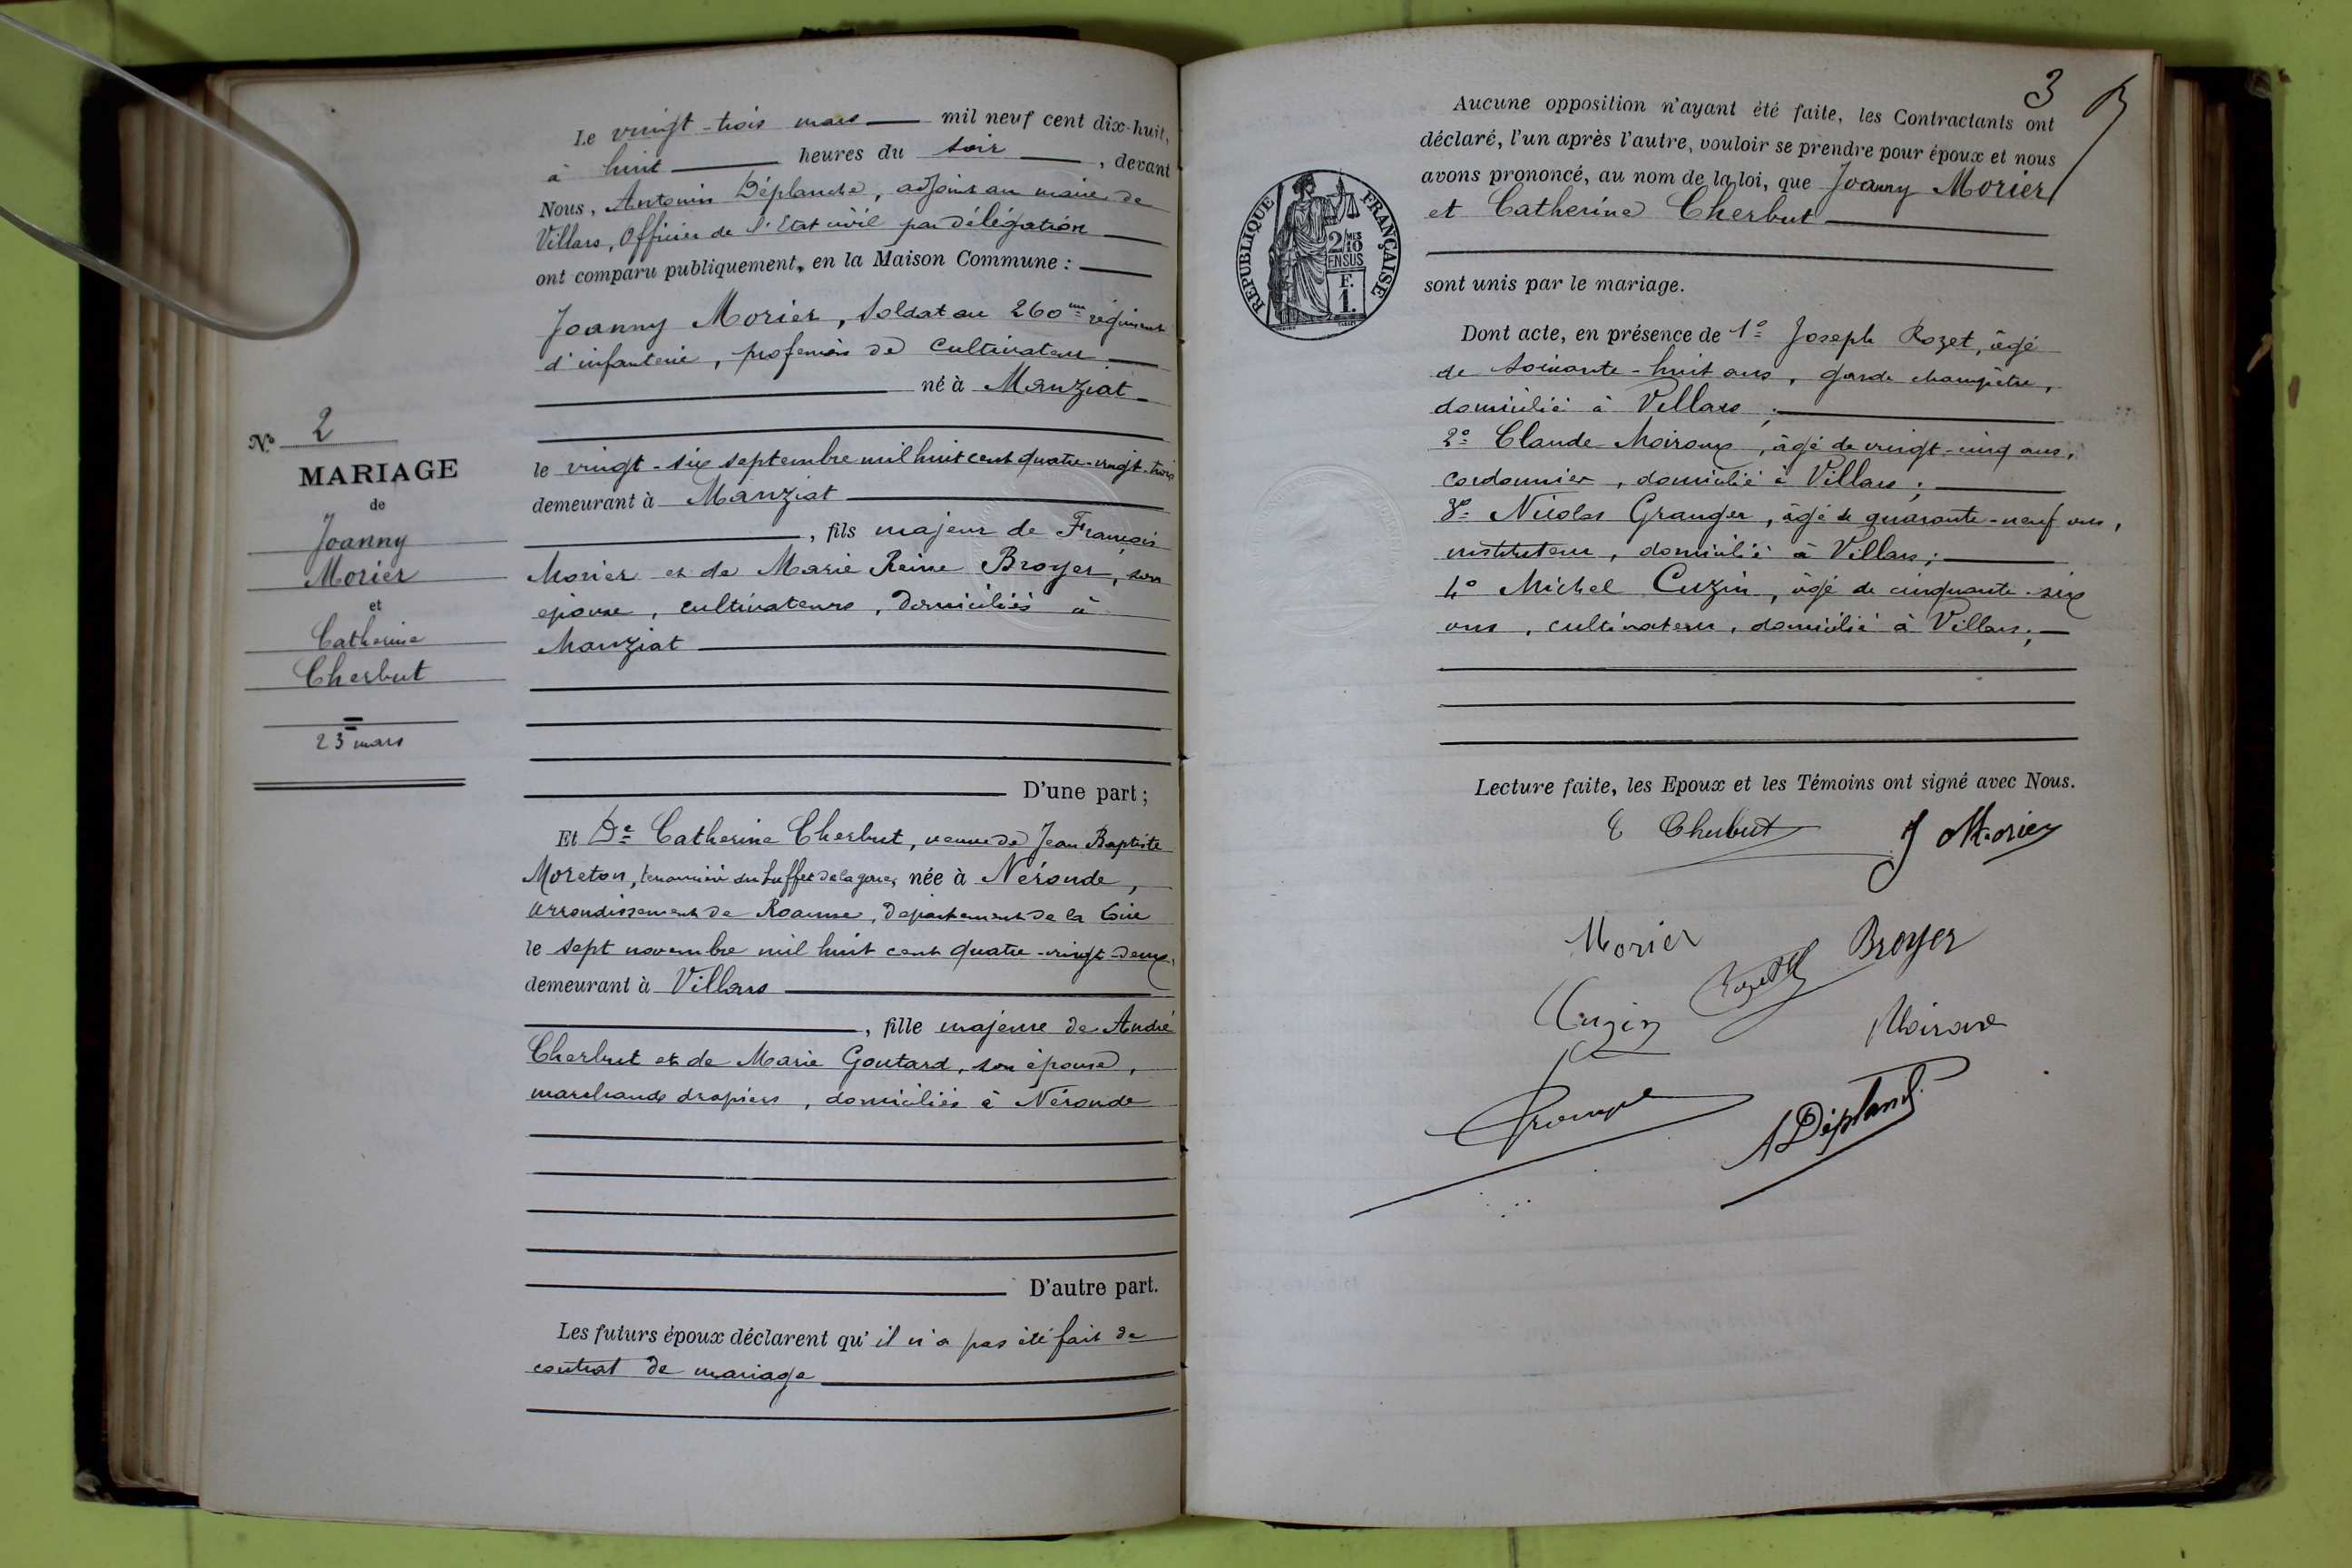 Le vingt-trois mars mil neuf cent dix-huit,
à huit heures du soir, devant
Nous, Antonin Déplanche, adjoint au maire de
Villars, Officier de l'Etat civil par délégation
ont comparu publiquement, en la Maison Commune :
Joanny Morier, soldat au 260me régiment
d'infanterie, profession de cultivateur
né à Manziat
N° 2
MARIAGE
de
Joanny
Morier
et
Catherine
Cherbut
23 mars
le vingt-six septembre mil huit cent quatre-vingt-trois
demeurant à Manziat
, fils majeur de François
Morier et de Marie Reine Broyer, son
épouse, cultivateurs, domiciliés à
Manziat
D'une part ;
Et De Catherine Cherbut, veuve de Jean Baptiste
Moreton, tenancière du buffet de la gare, née à Néronde,
arrondissement de Roanne, département de la Loire
le sept novembre mil huit cent quatre-vingt-deux,
demeurant à Villars
, fille majeure de André
Cherbut et de Marie Goutard, son épouse,
marchands drapiers, domiciliés à Néronde
D'autre part.
Les futurs époux déclarent qu'il n'a pas été fait de
contrat de mariage
3
Aucune opposition n'ayant été faite, les Contractants ont
déclaré, l'un après l'autre, vouloir se prendre pour époux et nous
avons prononcé, au nom de la loi, que Joanny Morier
et Catherine Cherbut
sont unis par le mariage.
REPUBLIQUE FRANÇAISE
2/10 MES
EN SUS
F.
1.
Dont acte, en présence de 1° Joseph Rozet, âgé
de soixante-huit ans, garde champêtre,
domicilié à Villars ;
2° Claude Moiroux, âgé de vingt-cinq ans,
cordonnier, domicilié à Villars ;
3° Nicolas Granger, âgé de quarante-neuf ans,
instituteur, domicilié à Villars ;
4° Michel Cuzin, âgé de cinquante-six
ans, cultivateur, domicilié à Villars ;
Lecture faite, les Epoux et les Témoins ont signé avec Nous.
C Cherbut J Morier
Morier Broyer
Rozet
Cuzin
A Déplanch